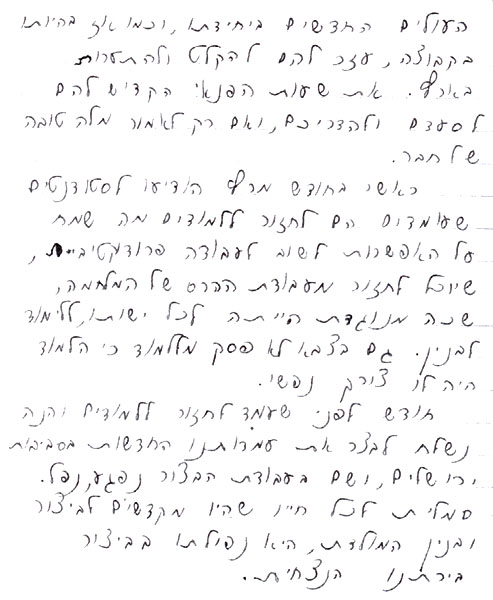 העולים החדשים ביחידתו, וכמו אז בהיותו
בקבוצה, עזר להם להקלט ולהתערות
בארץ. את שעות הפנאי הקדיש להם
לסעדם ולהדריכם, ואם רק לאמור מלה טובה
של חבר.
כאשר בחודש מרץ הודיעו לסטודנטים
שעומדים הם לחזור ללמודים מה שמח
על האפשרות לשוב לעבודה פרודוקטיבית,
שיוכל לחזור מעבודת ההרס של המלחמה,
שכה מנוגדת הייתה לכל ישותו, ללימוד
לבנין. גם בצבא לא פסק מללמוד כי הלמוד
היה לו צורך נפשי.
חודש לפני שעמד לחזור ללמודים והנה
נשלח לבצר את עמדותנו החדשות בסביבות
ירושלים, ושם בעבודת הבצור נפגע, נפל.
סמלית לכל חייו שהיו מקדשים לביצור
ובנין המולדת, היא נפילתו בביצור
בירתנו הנצחית.